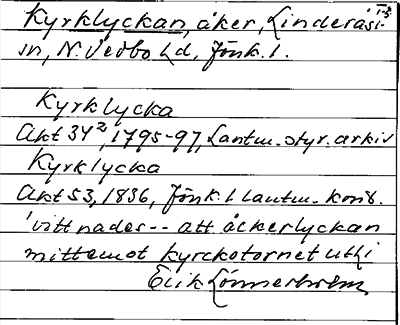 Kyrklyckan, åker, Linderås s:n
sn, N. Vedbo hd, Jönk. l.
Kyrklycka
Akt 34², 1795-97, Lantm. styr. arkiv
Kyrklycka
Akt 53, 1836, Jönk. l. lantm. kont.
'vittnades -- att åkerlyckan
mittemot kyrckotornet uthi
Erik Lönnerholm